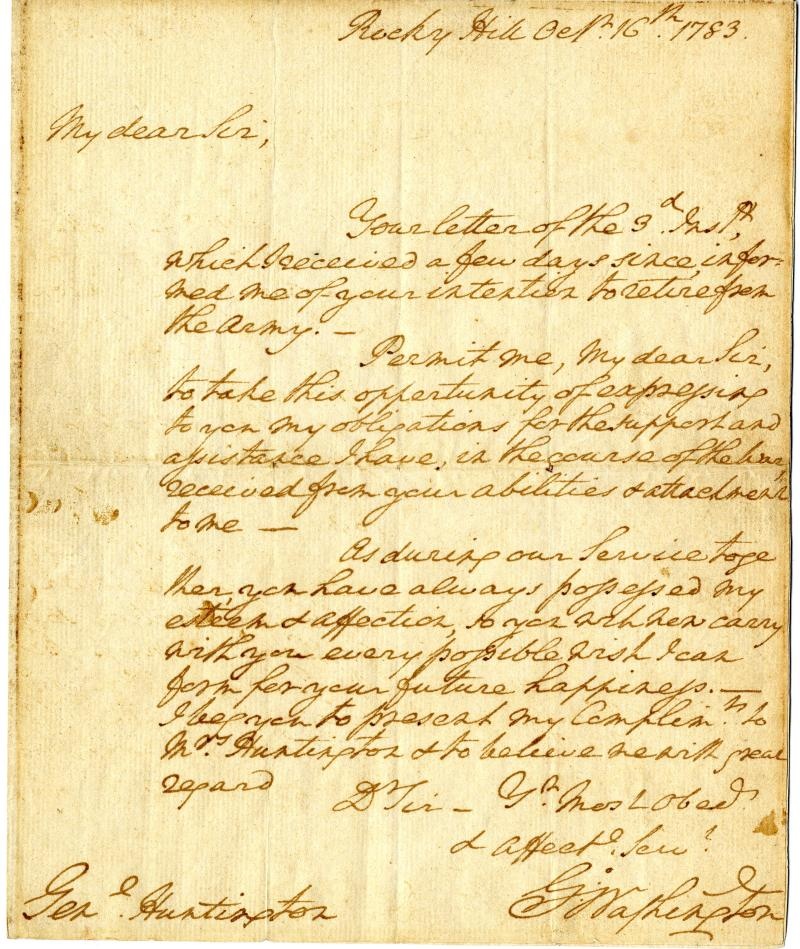 Rocky Hill Octr. 16th. 1783.
My dear Sir,
Your letter of the 3d. Inst.,
which I received a few days since, infor-
med me of your intention to retire from
the Army. —
Permit me, My dear Sir,
to take this opportunity of expressing
to you my obligations for the support and
assistance I have, in the course of the War,
received from your abilities & attachment
to me —
As during our Service toge
ther, you have always possessed my
esteem & affection, so you will now carry
with you every possible wish I can
form for your future happiness. —
I beg you to present my Complimts. to
Mrs. Huntington & to believe me with great
regard
Dr Sir — Yr. Most Obedt.
& affecte. Servt.
G:Washington
Genl. Huntington